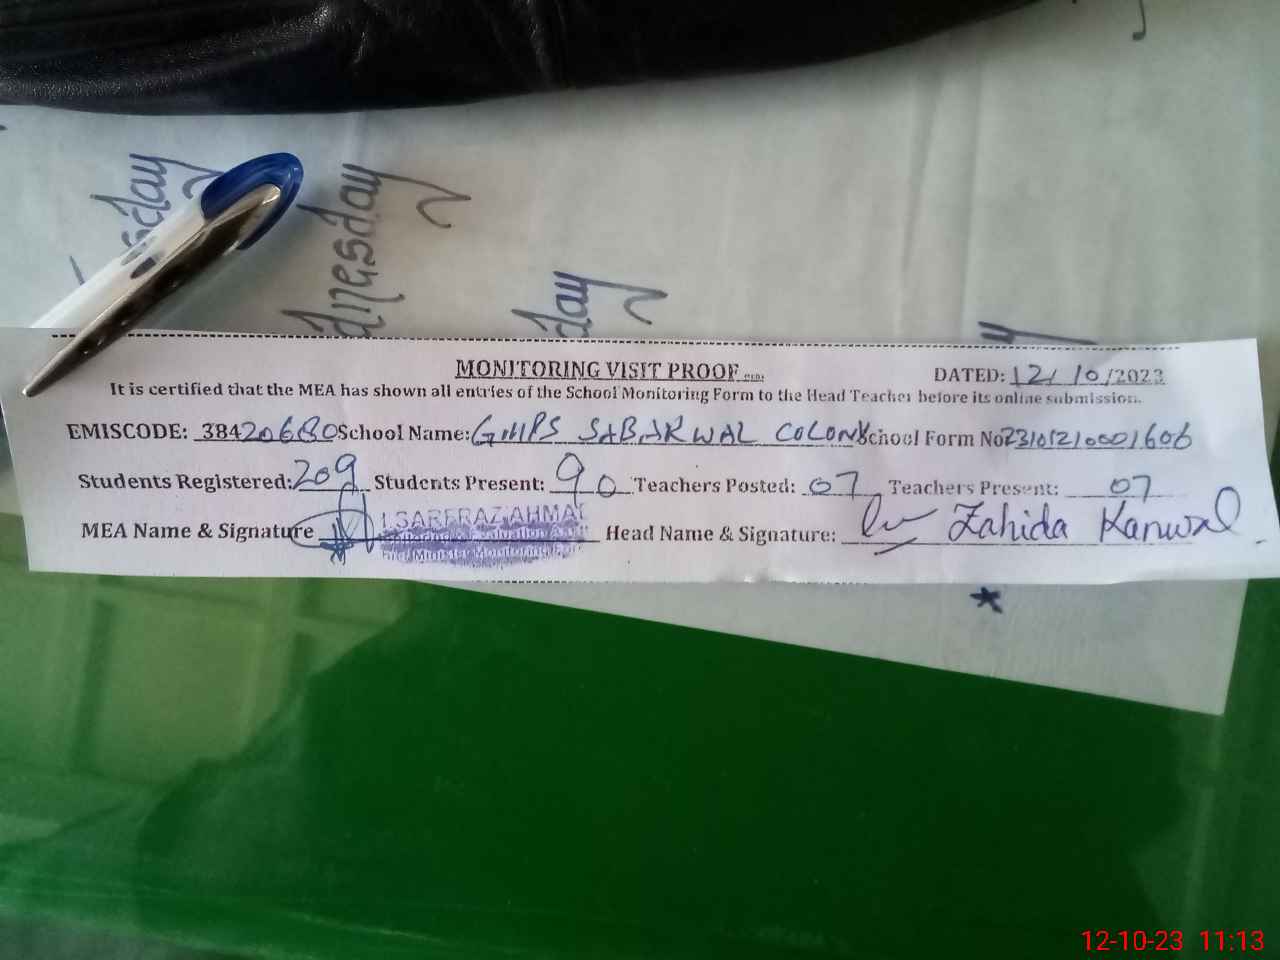 sday
dnesday
day
y
MONITORING VISIT PROOF
DATED: 12/10/2023
It is certified that the MEA has shown all entries of the School Monitoring Form to the Head Teacher before its online submission.
EMISCODE: 38420680 School Name: GMPS SABARWAL COLONY School Form No 23101210001606
Students Registered: 209 Students Present: 90 Teachers Posted: 07 Teachers Present: 07
MEA Name & Signature SARFRAZ AHMAD Head Name & Signature: Zahida Kanwal
12-10-23 11:13